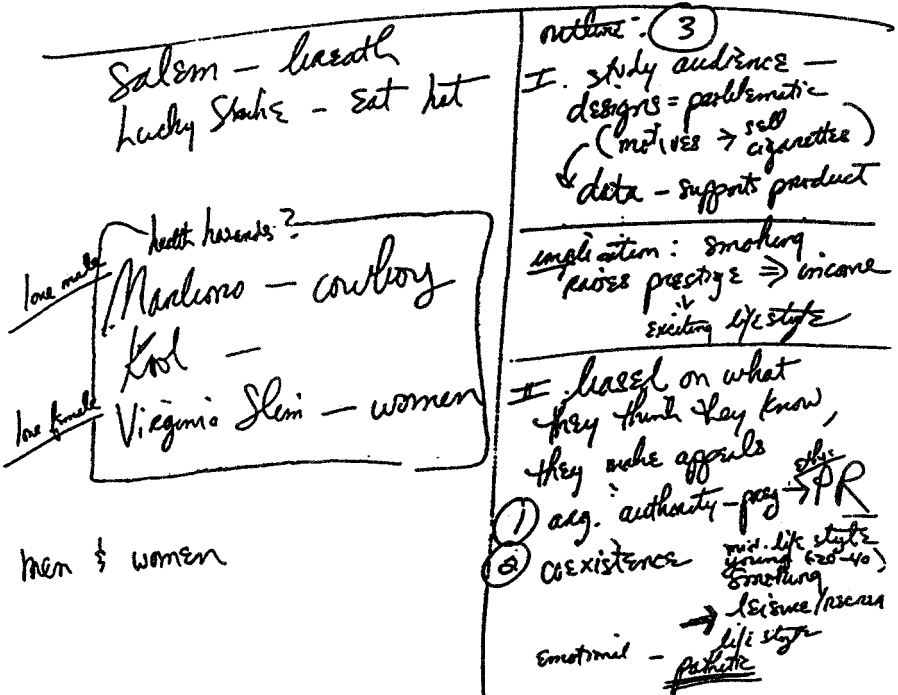 Salem - breath
Lucky Strike - Eat hot
health hazards?
lone male
Marlboro - cowboy
Kool -
lone female
Virginia Slim - women
men & women
outline: 3
I. study audience -
designs = problematic
(motives → sell
cigarettes)
data - supports product
implication: smoking
raises prestige ⇒ income
exciting lifestyle
II. based on what
they think they know,
they make appeals
ethos
1 arg. authority - preg → PR
2 coexistence
mid. life style
young (20-40)
smoking
→ leisure/recrea
life style
Emotional - pathetic